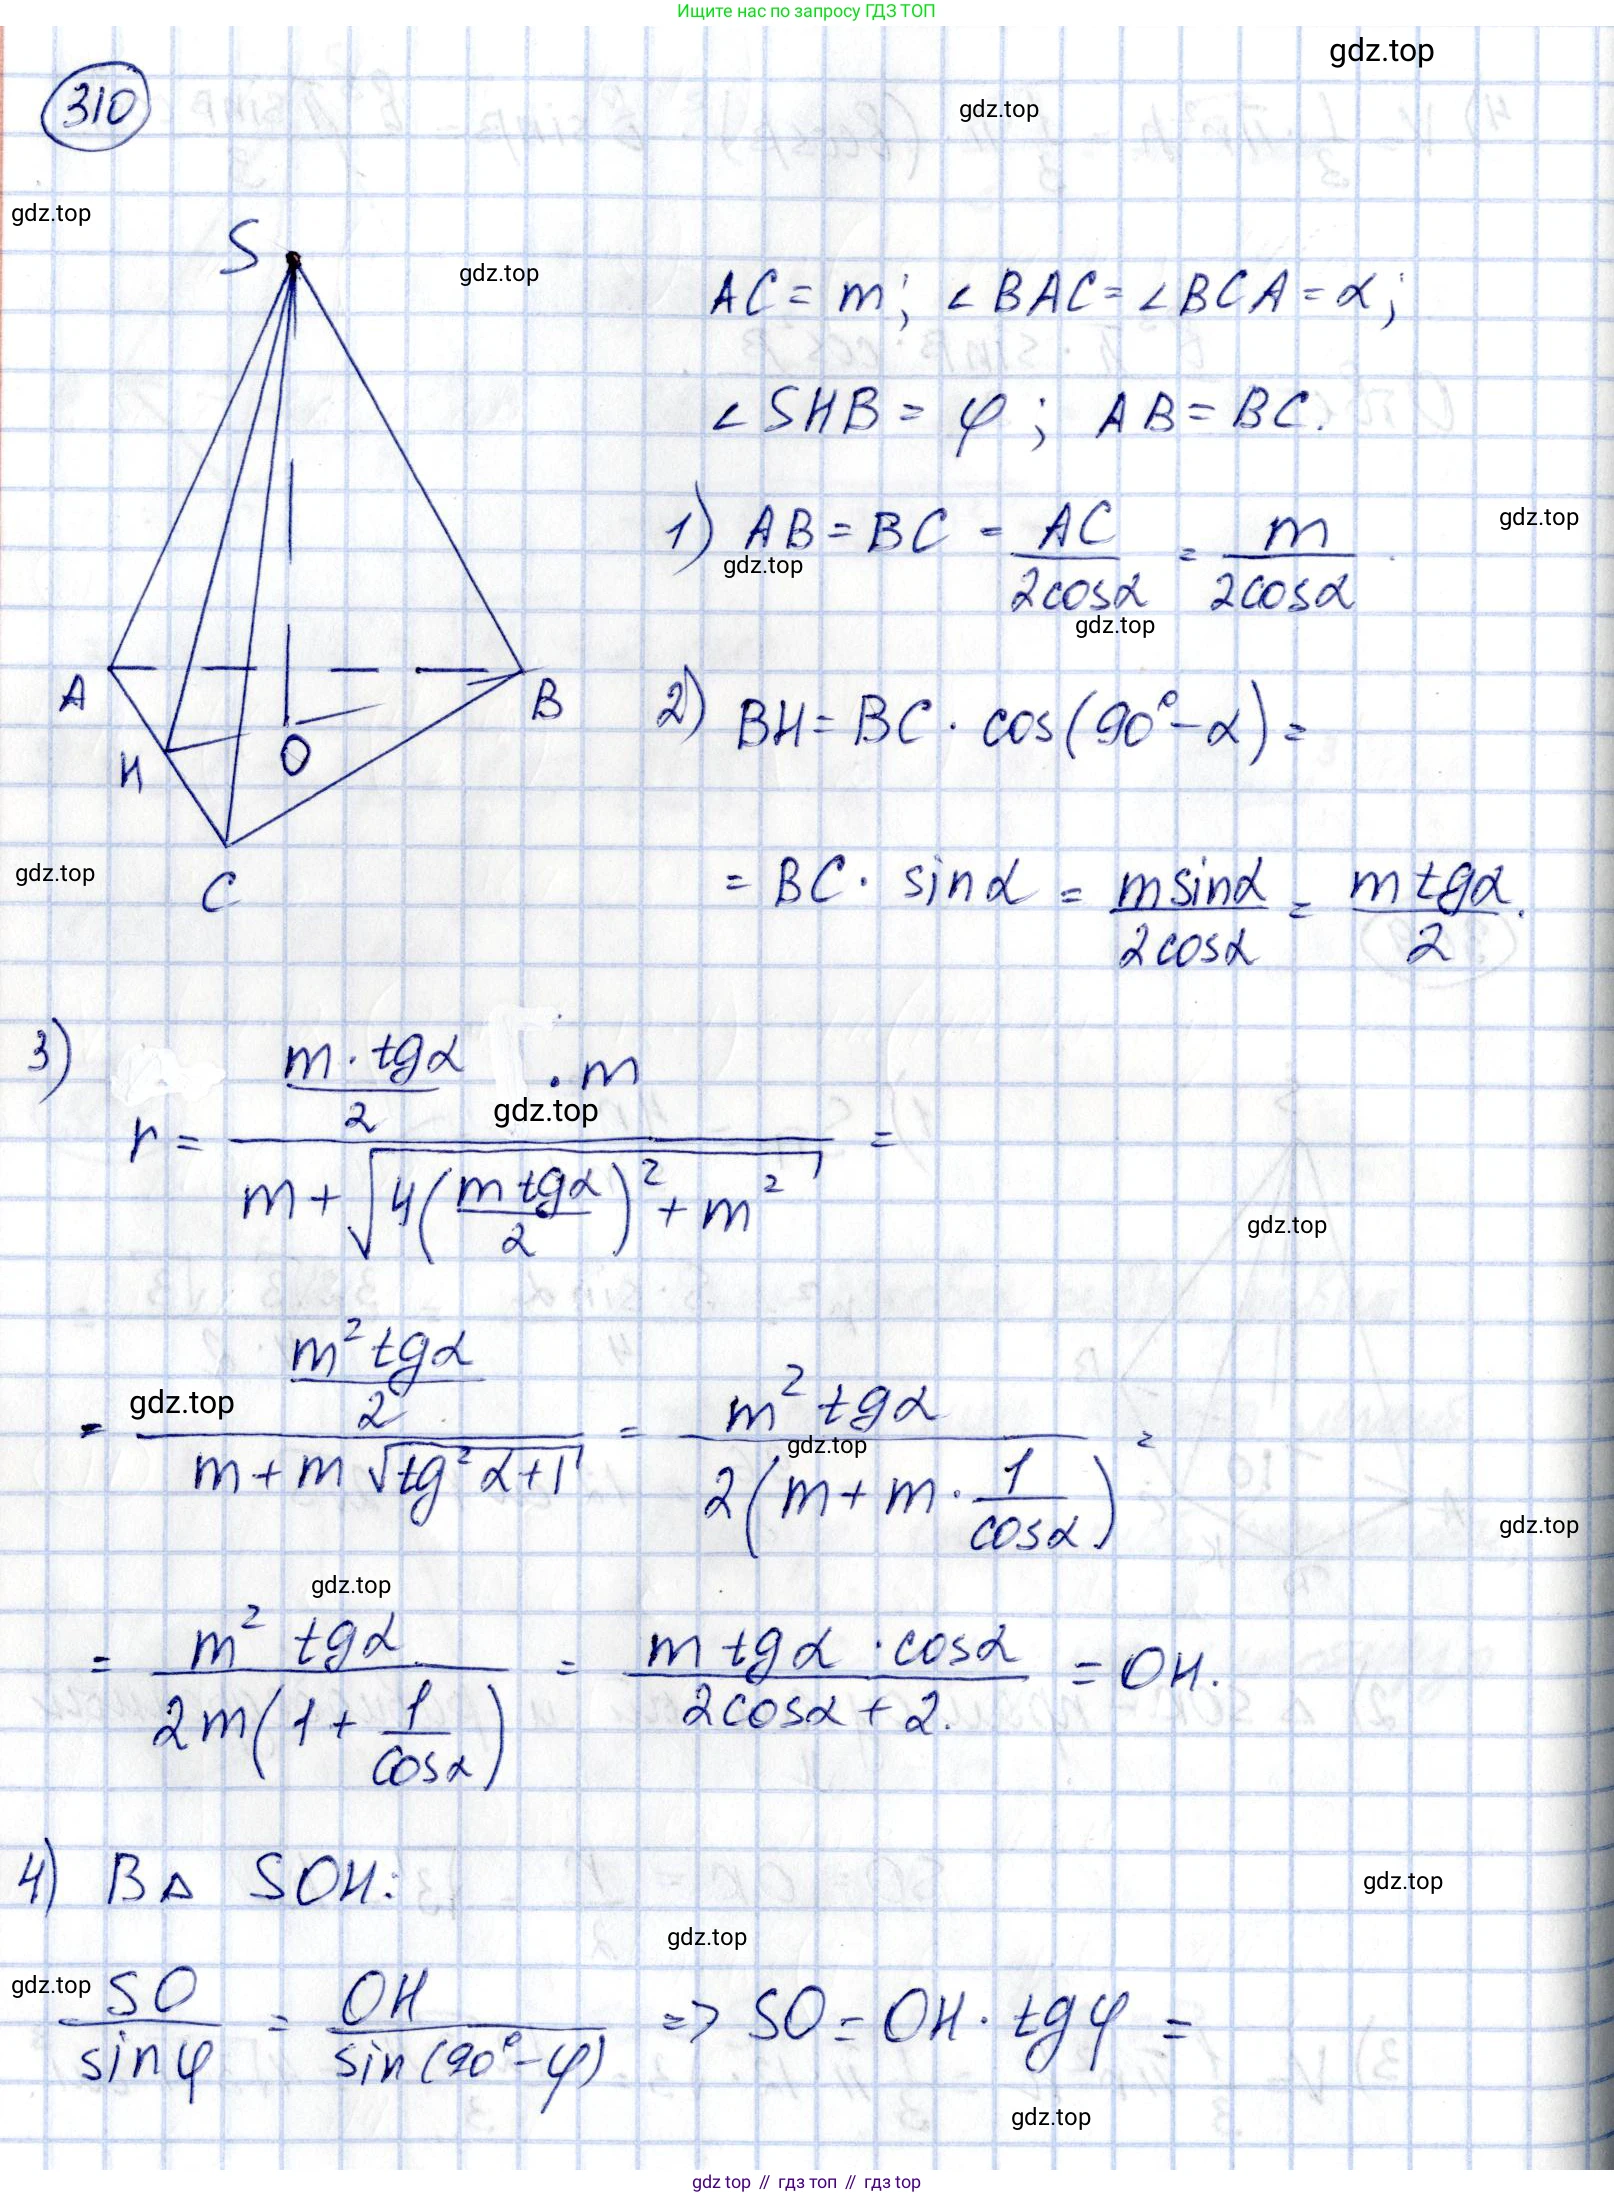 Ищите нас по запросу ГДЗ ТОП
gdz.top
310
gdz.top
gdz.top
S
gdz.top
AC = m; ∠BAC = ∠BCA = α;
∠SHB = φ; AB = BC.
1) AB = BC = AC/2cosα = m/2cosα.
gdz.top
gdz.top
gdz.top
A
B
H
O
C
2) BH = BC · cos(90° - α) =
gdz.top
= BC · sinα = m sinα/2cosα = m tgα/2.
3) r = (m · tgα/2 · m)/(m + √(4(m tgα/2)² + m²)) =
gdz.top
gdz.top
= (m² tgα/2)/(m + m√(tg²α + 1)) = m² tgα/2(m + m · 1/cosα) =
gdz.top
gdz.top
gdz.top
gdz.top
= m² tgα/2m(1 + 1/cosα) = m tgα · cosα/2cosα + 2. = OH.
4) В △ SOH:
gdz.top
gdz.top
gdz.top
SO/sinφ = OH/sin(90° - φ) => SO = OH · tgφ =
gdz.top
gdz top // гдз топ // гдз top